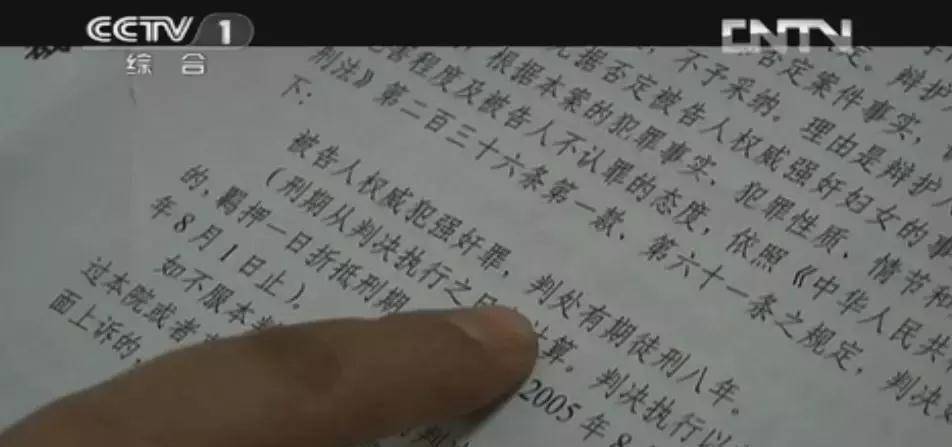 CCTV 1
综合
CNTV
定。辩护
否定案件事实，
不予采纳。理由是辩护
据否定被告人权威强奸妇女的事
根据本案的犯罪事实、犯罪性质、情节和
害程度及被告人不认罪的态度，依照《中华人民共
刑法》第二百三十六条第一款、第六十一条之规定，判决
下：
被告人权威犯强奸罪，判处有期徒刑八年。
（刑期从判决执行之日 算。判决执行以
的，羁押一日折抵刑期 2005年8
年8月1日止）。
如不服本
过本院或者
面上诉的，